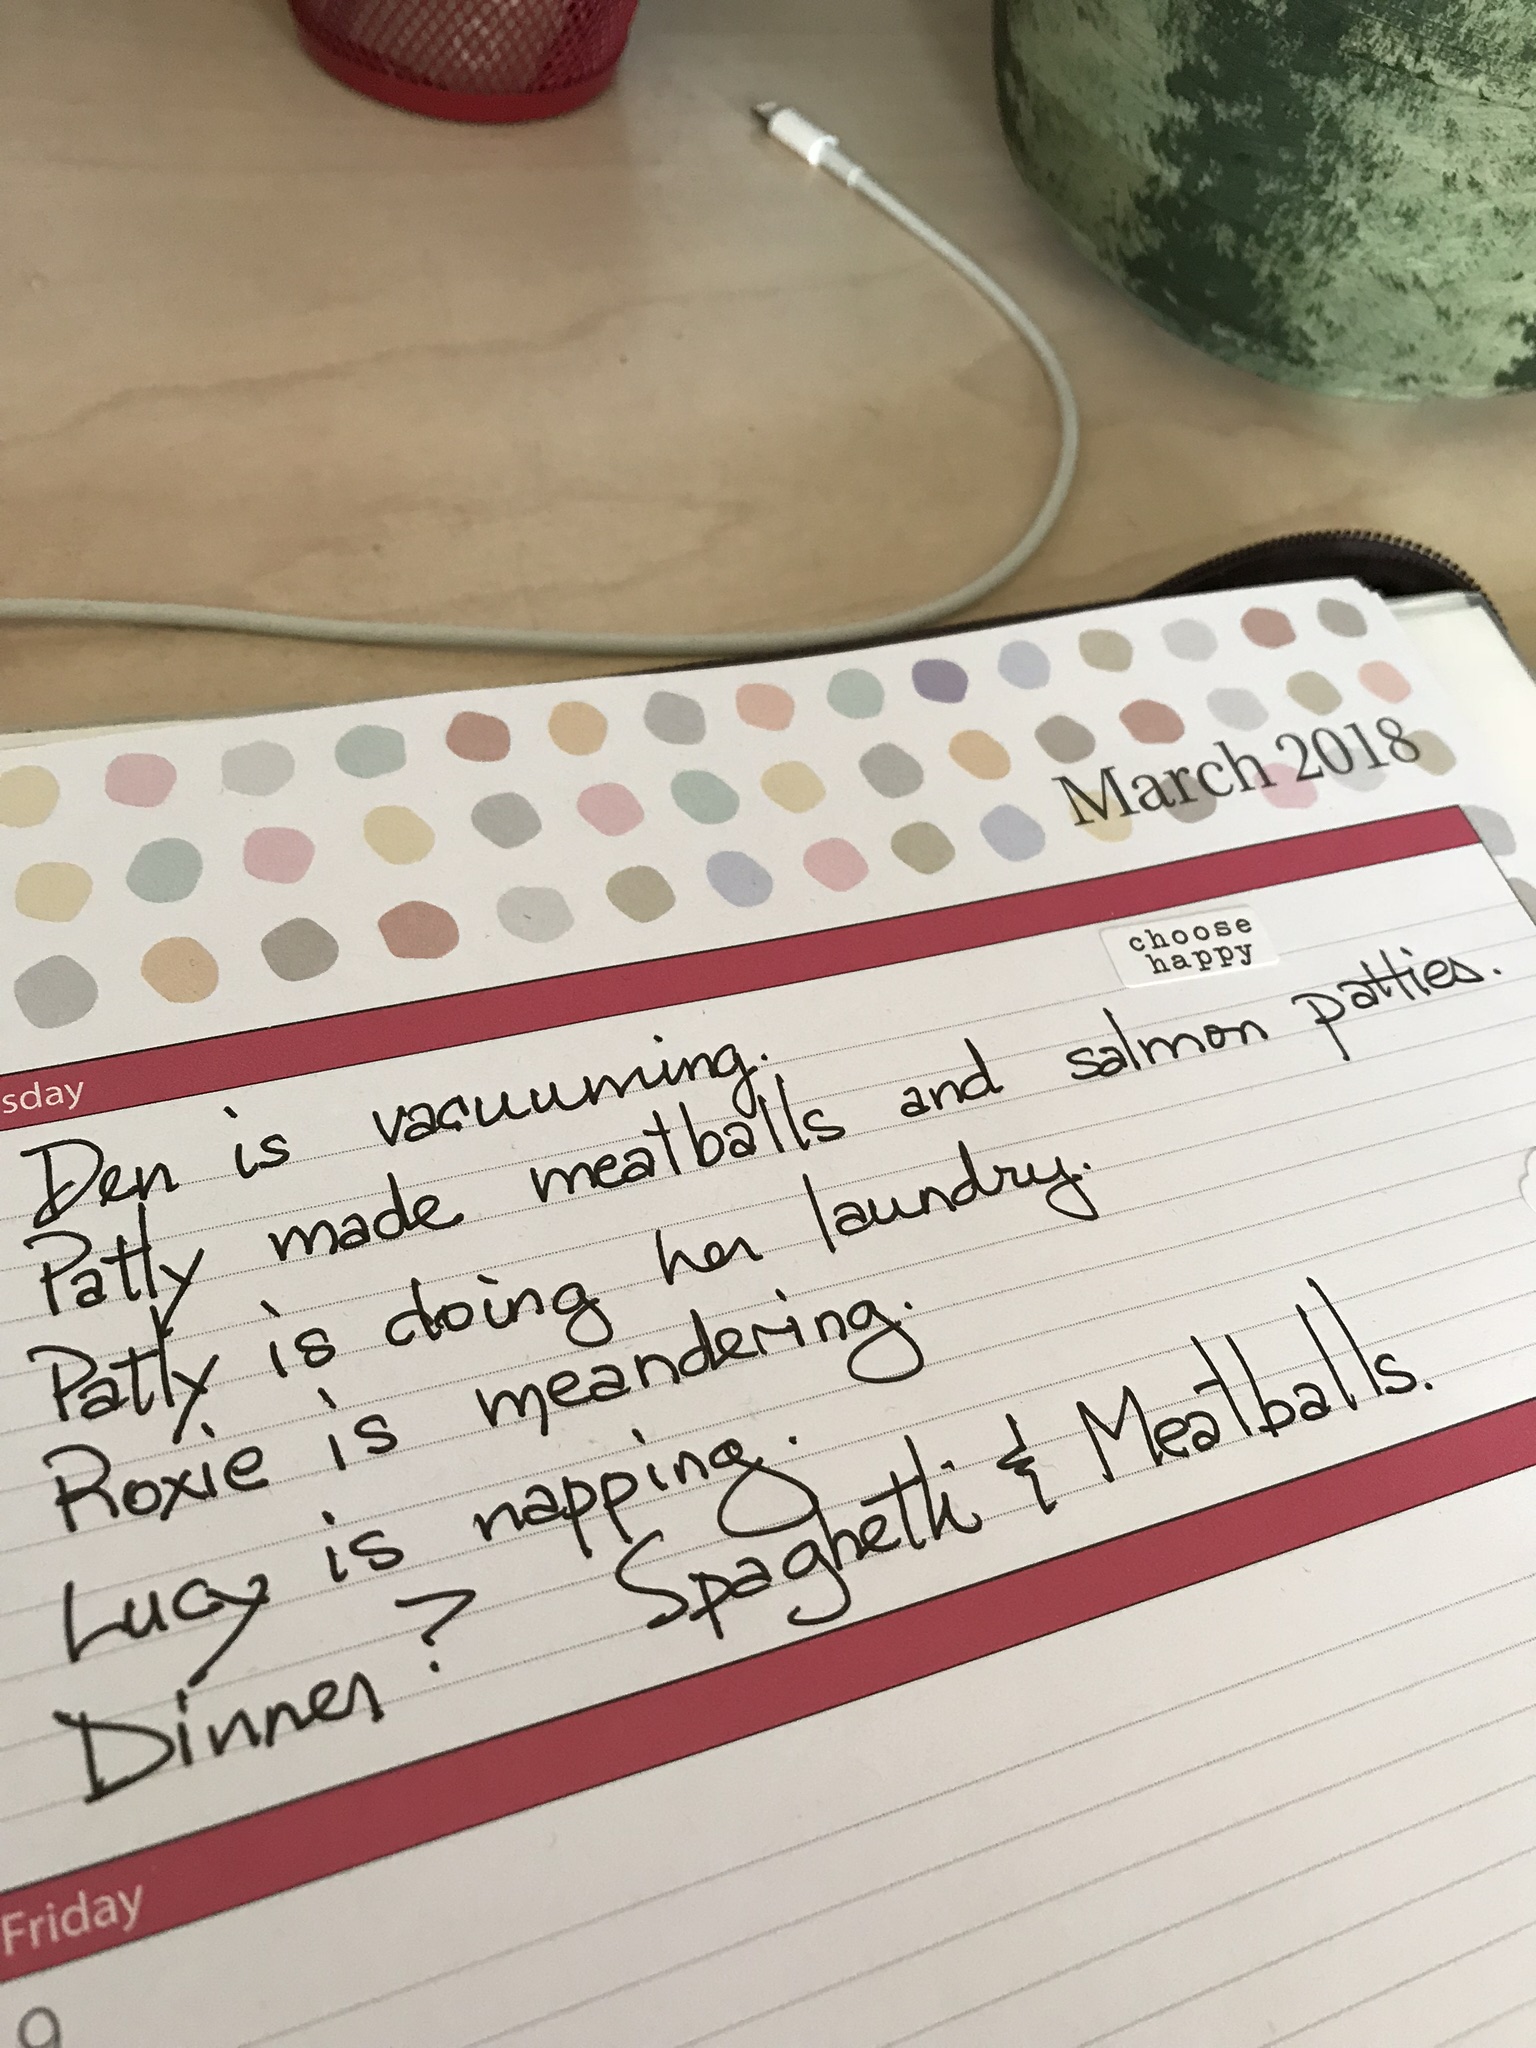 March 2018
choose
happy
sday
Den is vacuuming.
Patty made meatballs and salmon patties.
Patty is doing her laundry.
Roxie is meandering.
Lucy is napping.
Dinner? Spaghetti & Meatballs.
Friday
9